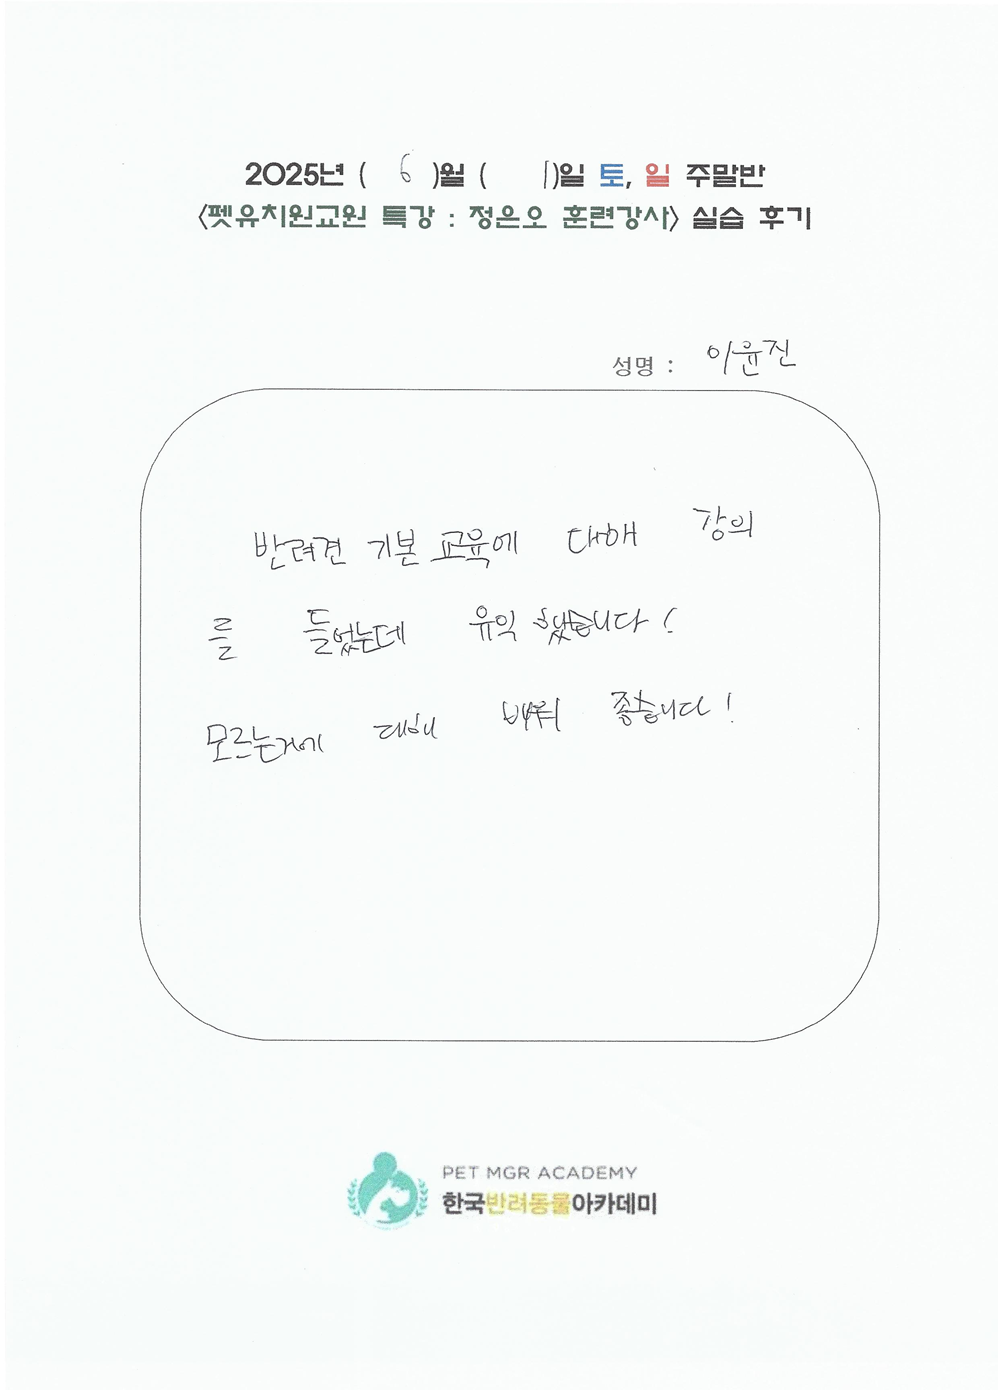 2025년 ( 6 )월 ( 1)일 토, 일 주말반
<펫유치원교원 특강 : 정은오 훈련강사> 실습 후기
성명 : 이윤진
반려견 기본 교육에 대해 강의
를 들었는데 유익했습니다!
모르는거에 대해 배워 좋습니다!
PET MGR ACADEMY
한국반려동물아카데미